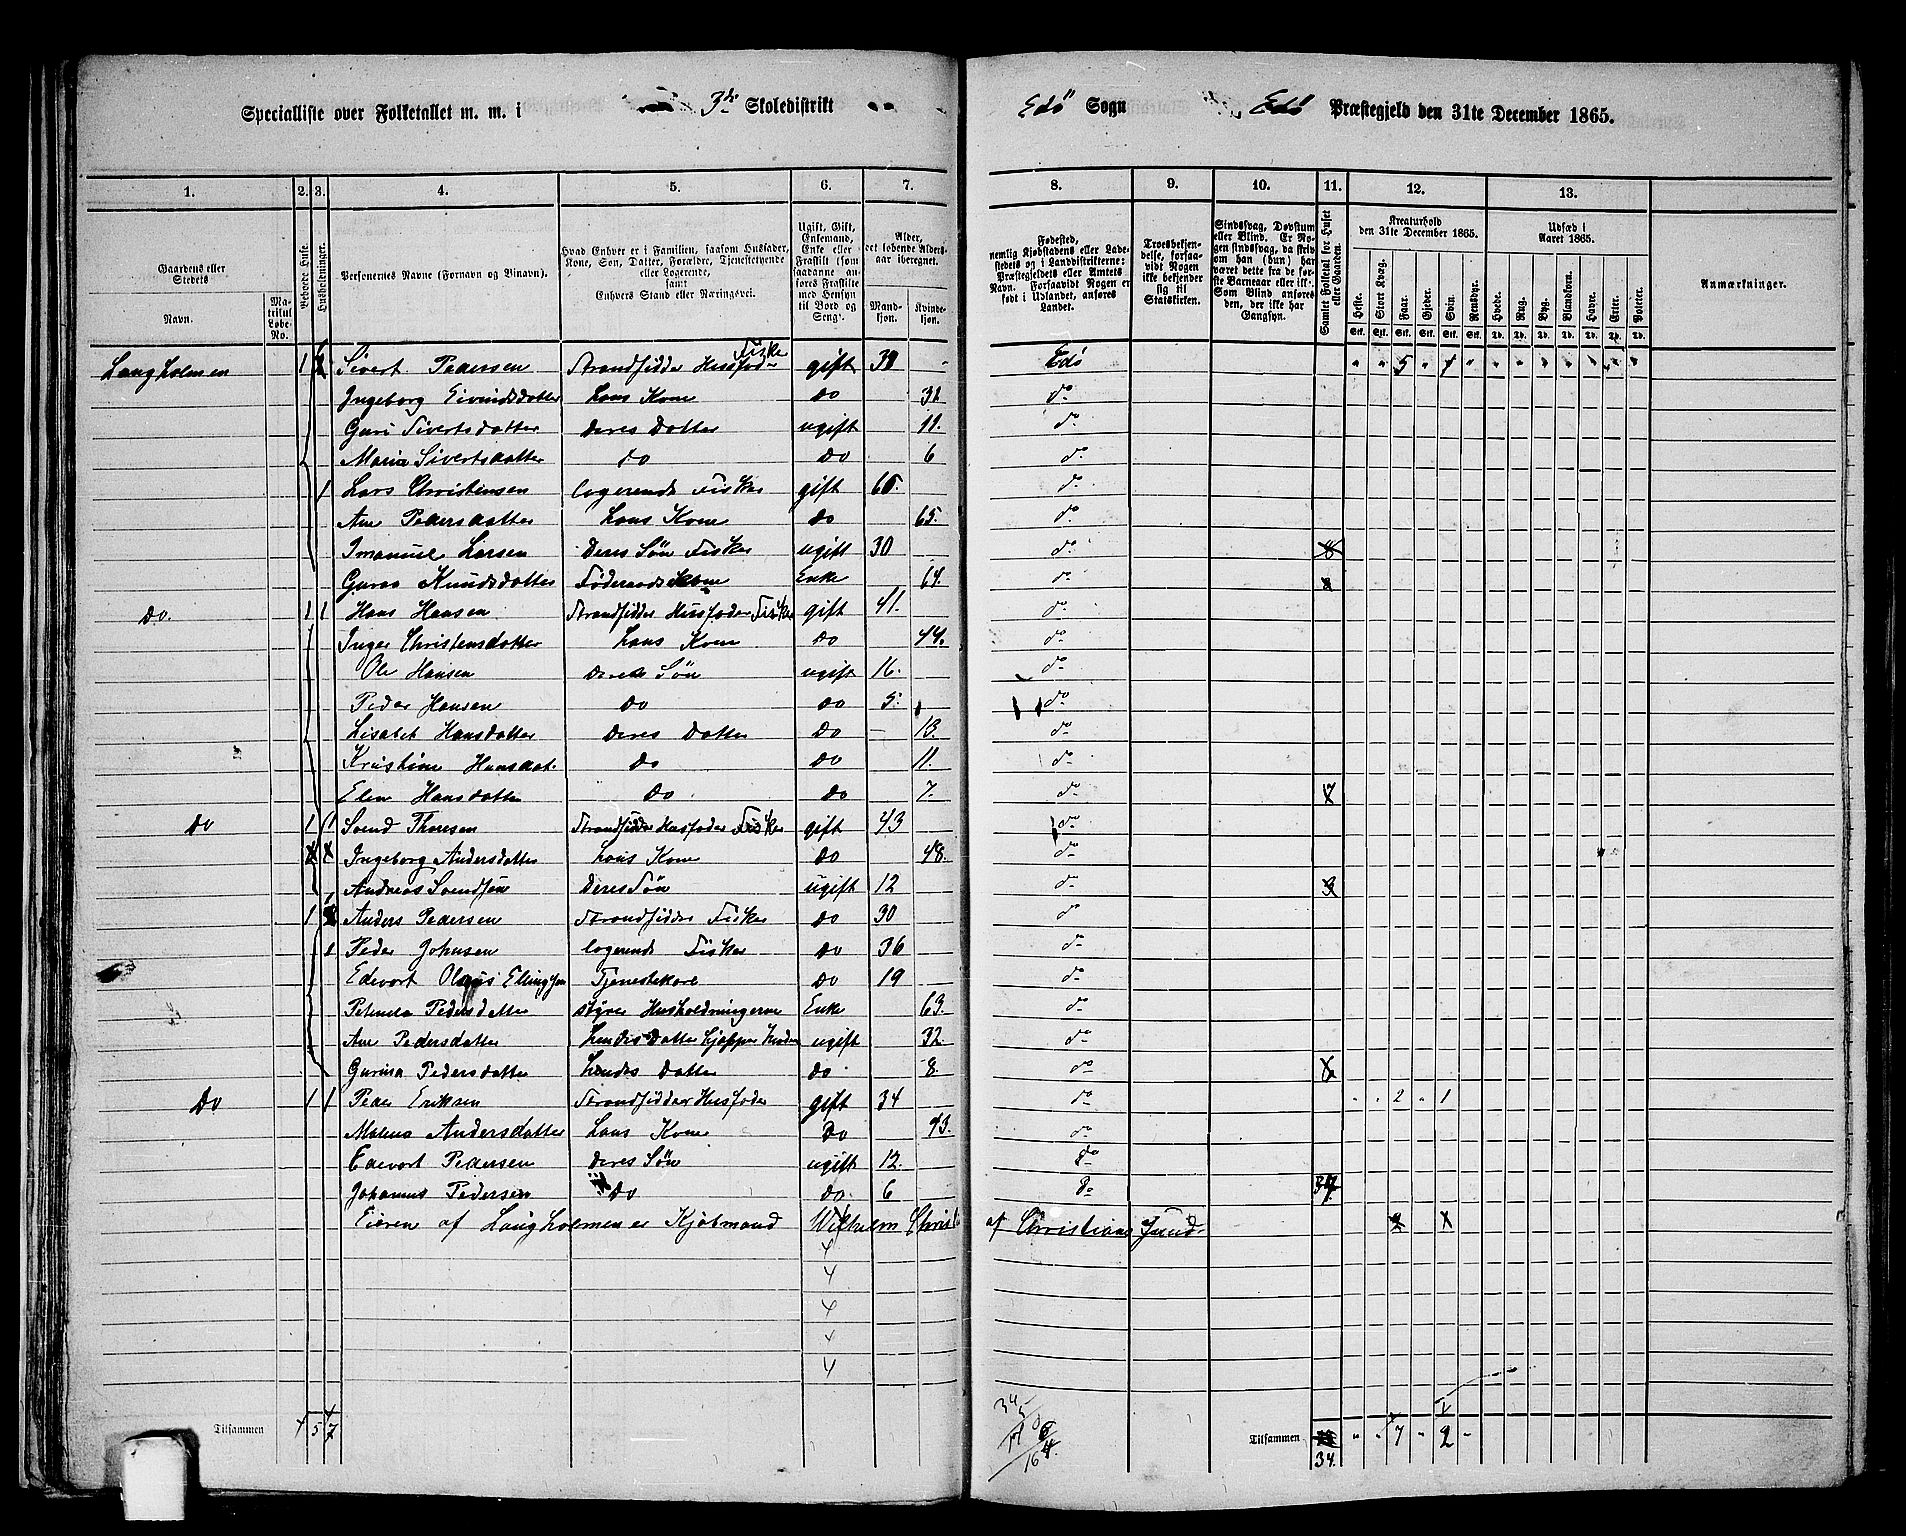 Specialliste over Folketallet m. m. i 3die Skoledistrikt Edø Sogn Edø Præstegjeld den 31te December 1865.
1. 2. 3. 4. 5. 6. 7. 8. 9. 10. 11. 12. 13.
Gaardens eller Stedets Navn. Matrikul Løbe-No. Beboede Huse. Husholdninger. Personernes Navne (Fornavn og Binavn). Hvad Enhver er i Familien, saasom Husfader, Kone, Søn, Datter, Forældre, Tjenestetyende eller Logerende, samt Enhvers Stand eller Næringsvei. Alder, det løbende Alders-aar iberegnet. Mand-kjøn. Kvinde-kjøn.
Kreaturhold den 31te December 1865. Udsæd i Aaret 1865. Anmærkninger.
Heste. Stort Kvæg. Faar. Gjeder. Svin. Rensdyr. Hvede. Rug. Byg. Blandkorn. Havre. Erter. Poteter.
Langholmen 1 Sivert Pedersen Strandsidder Husfader Fisker gift 38 Edø " " 5 " 1 " " " " " " " "
Ingeborg Eivindsdatter Hans Kone do 32 do
Guri Sivertsdatter Deres Datter ugift 11. do
Maria Sivertsdatter do do 6 do
1 Lars Christensen logerende Fisker gift 65. do
Ane Pedersdatter Hans Kone do 65. do
Imanuel Larsen Deres Søn Fisker ugift 30 do
Guroe Knudsdatter Føderaadskone Enke 64. do 8
do. 1 1 Hans Hansen Strandsidder Husfader Fisker gift 41. do
Inger Christensdatter Hans Kone do 44. do
Ole Hansen deres Søn ugift 16. do
Peder Hansen do do 5. do
Lisabet Hansdatter Deres Datter do 13. do
Kristine Hansdat. do do 11. do
Elen Hansdatter do do 7. do 7
do 1 1 Svend Thoresen Strandsidder Husfader Fisker gift 43 do
Ingeborg Andersdatter Hans Kone do 48. do
Andreas Svendsøn Deres Søn ugift 12 do 3
1 Anders Pedersen Strandsidder Fisker do 30 do
Peder Johnsen logerende Fisker do 36 do
Edevart Olaus Ellingsen Tjenestekarl do 19 do
Petrnela Pedersdatter styrer Husholdningerne Enke 63. do
Ane Pedersdatter Hendes Datter hjælper Moderen ugift 32. do
Gurina Pedersdatter Hendes Datter do 8. do
Do 1 1 Peder Eriksen Strandsidder Husfader gift 34 do " " 2 " 1
Malena Andersdatter Hans Kone do 43. do
Edevart Pedersen deres Søn ugift 12. do
Johannes Pedersen do do. 6 do
Eieren af Langholmen er Kjøbmand Wilhelm Christ af Christiansund
4
4
4
4
4
Tilsammen 5 7 Tilsammen 34. " " 7 " 2 "